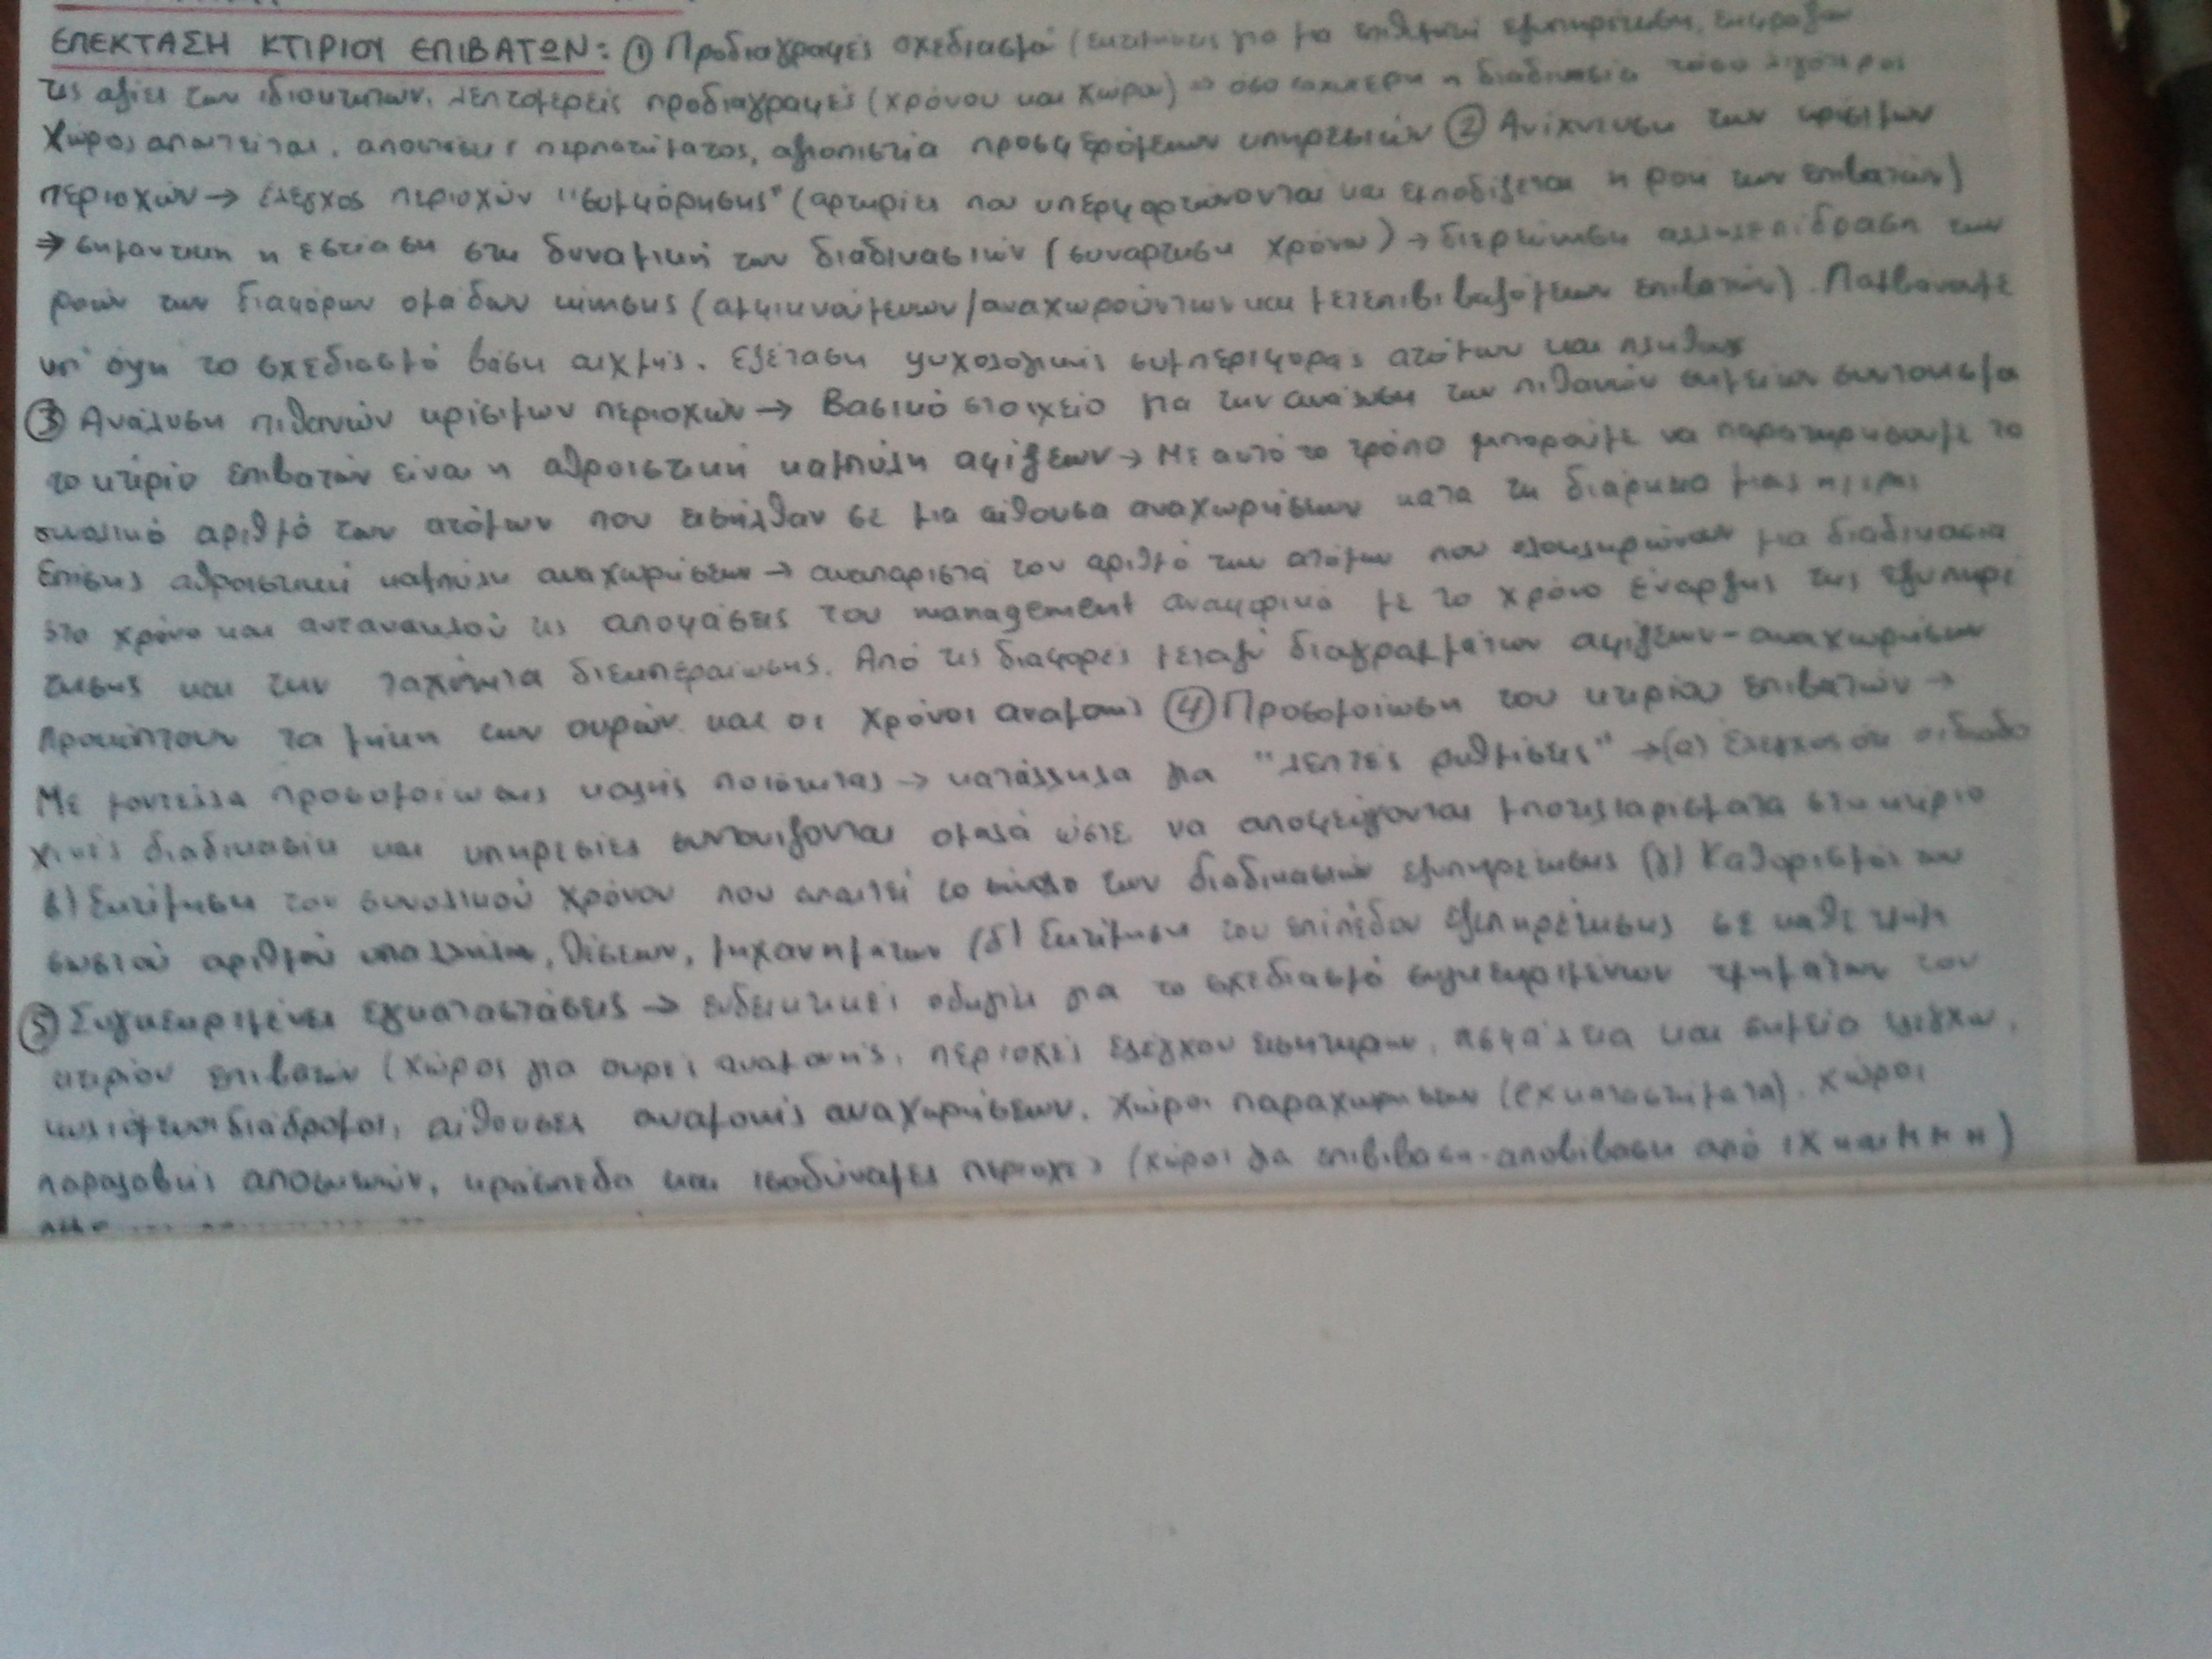 ΕΠΕΚΤΑΣΗ ΚΤΙΡΙΟΥ ΕΠΙΒΑΤΩΝ: ① Προδιαγραφές σχεδιασμού (εκτιμήσεις για μια επιθυμητή εξυπηρέτηση, εκφράζουν
τις αξίες των ιδιοκτητών. λεπτομερείς προδιαγραφές (χρόνου και χώρου) ⇒ όσο ταχύτερη η διαδικασία τόσο λιγότερος
χώρος απαιτείται. αποστάσεις περπατήματος, αξιοπιστία προσφερόμενων υπηρεσιών ② Ανίχνευση των κρίσιμων
περιοχών → έλεγχος περιοχών "συμφόρησης" (αρτηρίες που υπερφορτώνονται και εμποδίζεται η ροή των επιβατών)
⇒ σημαντική η εστίαση στη δυναμική των διαδικασιών (συνάρτηση χρόνου) → διερεύνηση αλληλεπίδραση των
ροών των διαφόρων ομάδων κίνησης (αφικνούμενων/αναχωρούντων και μετεπιβιβαζόμενων επιβατών). Λαμβάνουμε
υπ' όψη το σχεδιασμό βάση αιχμής. Εξέταση ψυχολογικής συμπεριφοράς ατόμων και πλήθους
③ Ανάλυση πιθανών κρίσιμων περιοχών → Βασικό στοιχείο για την ανάλυση των πιθανών σημείων συνωστισμού
το κτίριο επιβατών είναι η αθροιστική καμπύλη αφίξεων → Με αυτό το τρόπο μπορούμε να παρατηρήσουμε το
συνολικό αριθμό των ατόμων που εισήλθαν σε μια αίθουσα αναχωρήσεων κατά τη διάρκεια μιας ημέρας
Επίσης αθροιστική καμπύλη αναχωρήσεων → αναπαριστά τον αριθμό των ατόμων που ολοκληρώνουν μια διαδικασία
στο χρόνο και αντανακλού τις αποφάσεις του management αναφορικά με το χρόνο έναρξης της εξυπηρέ
τησης και την ταχύτητα διεκπεραίωσης. Από τις διαφορές μεταξύ διαγραμμάτων αφίξεων-αναχωρήσεων
προκύπτουν τα μήκη των ουρών και οι χρόνοι αναμονής ④ Προσομοίωση του κτιρίου επιβατών →
Με μοντέλα προσομοίωσης καλής ποιότητας → κατάλληλα για "λεπτές ρυθμίσεις" → (α) έλεγχος ότι οι διαδο
χικές διαδικασίες και υπηρεσίες συντονίζονται ομαλά ώστε να αποφεύγονται μποτιλιαρίσματα στο κτίριο
β) Εκτίμηση του συνολικού χρόνου που απαιτεί το σύνολο των διαδικασιών εξυπηρέτησης (γ) Καθορισμός του
σωστού αριθμού υπαλλήλων, θέσεων, μηχανημάτων (δ) Εκτίμηση του επιπέδου εξυπηρέτησης σε κάθε τμήμα
⑤ Συγκεκριμένες εγκαταστάσεις → ενδεικτικές οδηγίες για το σχεδιασμό συγκεκριμένων τμημάτων του
κτιρίου επιβατών (χώρος για ουρές αναμονής, περιοχές ελέγχου εισιτηρίων, ασφάλεια και σημείο ελέγχου,
κυλιόμενοι διάδρομοι, αίθουσες αναμονής αναχωρήσεων. χώροι παραχωρήσεων (πχ καταστήματα). χώροι
παραλαβής αποσκευών, κράσπεδα και ισοδύναμες περιοχές (χώροι για επιβίβαση-αποβίβαση από ΙΧ και ΜΜΜ)